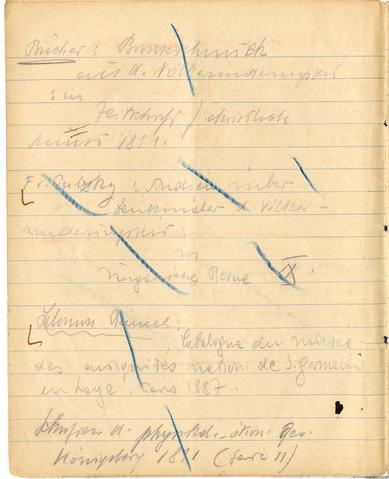 Bücher:
aus d. Völkerwanderungszeit
in
Zeitschrift f. christliche
Kunst 1891.
Fr. Pulszky: Studien über
Denkmäler d. Völker-
wanderungszeit
in
Ungarische Revue IX.
Salomon Reinach:
Catalogue du musée
des antiquités nation. de S. Germain
en Laye. Paris 1887.
d. physikal.-ökon. Ges.
Königsberg 1891